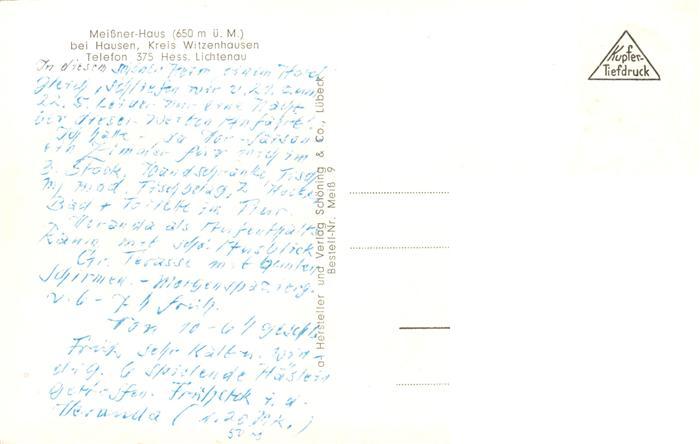 Meißner-Haus (650 m ü. M.)
bei Hausen, Kreis Witzenhausen
Telefon 375 Hess. Lichtenau
Kupfer-
Tiefdruck
In diesem Heim, einem Hotel
gleich, schliefen wir v. 21. zum
22. 5. leider nur eine Nacht
bei dieser weiten Anfahrt!
Ich hatte - da Vor-Saison
ein Zimmer für mich im
3. Stock, Wandschränke, Tisch
m. mod. Tischbelag, 2 Hocker
Bad + Toilette im Flur.
Veranda als Aufenthalts
Raum mit schö. Ausblick
Gr. Terasse mit bunten
Schirmen. - Morgenspazierg.
v. 6 - 7 h früh.
Von 10 - 6 h geschl.
Früh sehr kalt u. win-
dig. 6 spielende Häslein
getroffen. Frühstck i. d.
Veranda (
Hersteller und Verlag Schöning & Co., Lübeck
Bestell-Nr. Meiß 9